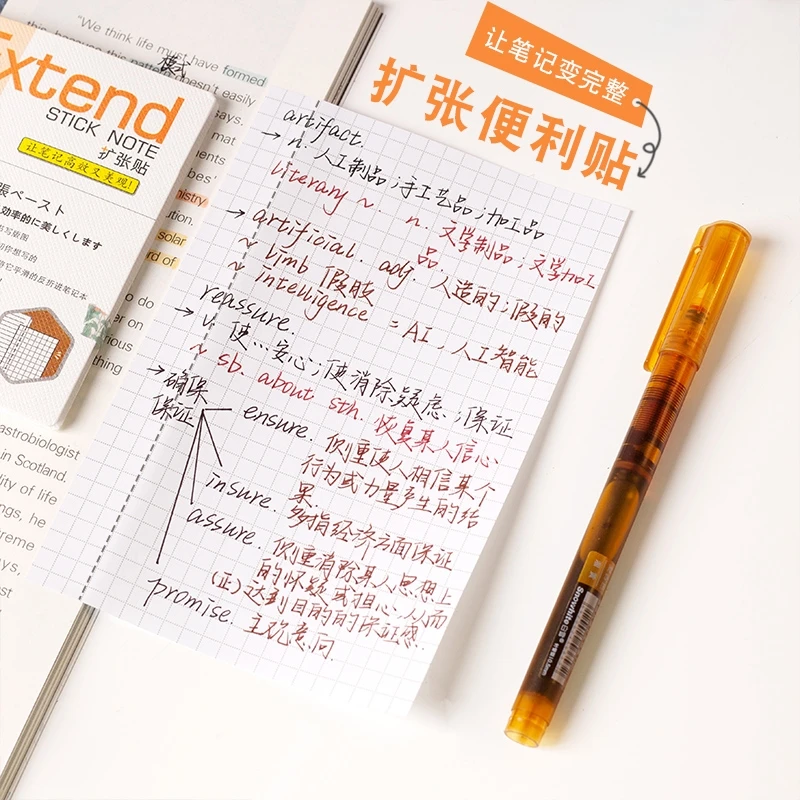 让笔记变完整
扩张便利贴
Extend
STICK NOTE
扩张贴
让笔记高效又美观!
張ペースト
効率的に美しくします
"We think life must have formed
模式
doesn't easily
says,
mat
ments
bes'
mistry/
ution.
solar
rd of
to do
er on
rious
thing
astrobiologist
in Scotland.
ity of life
ngs, he
artifact.
→ n. 人工制品;手工艺品;加工品
literary ~. n. 文学制品;文学加工
品.
→ artificial. adj. 人造的;假的
~ limb 假肢
~ intelligence = AI, 人工智能
reassure.
→ v. 使…安心;使消除疑虑;保证
~ sb. about sth. 恢复某人信心
→ 确保
保证
ensure. 侧重使人相信某个
行为或力量产生的结
果.
insure. 多指经济方面保证
assure. 侧重消除某人思想上
的怀疑或担心,从而
(正)达到目的的保证感.
promise. 主观意向.
Snowhite